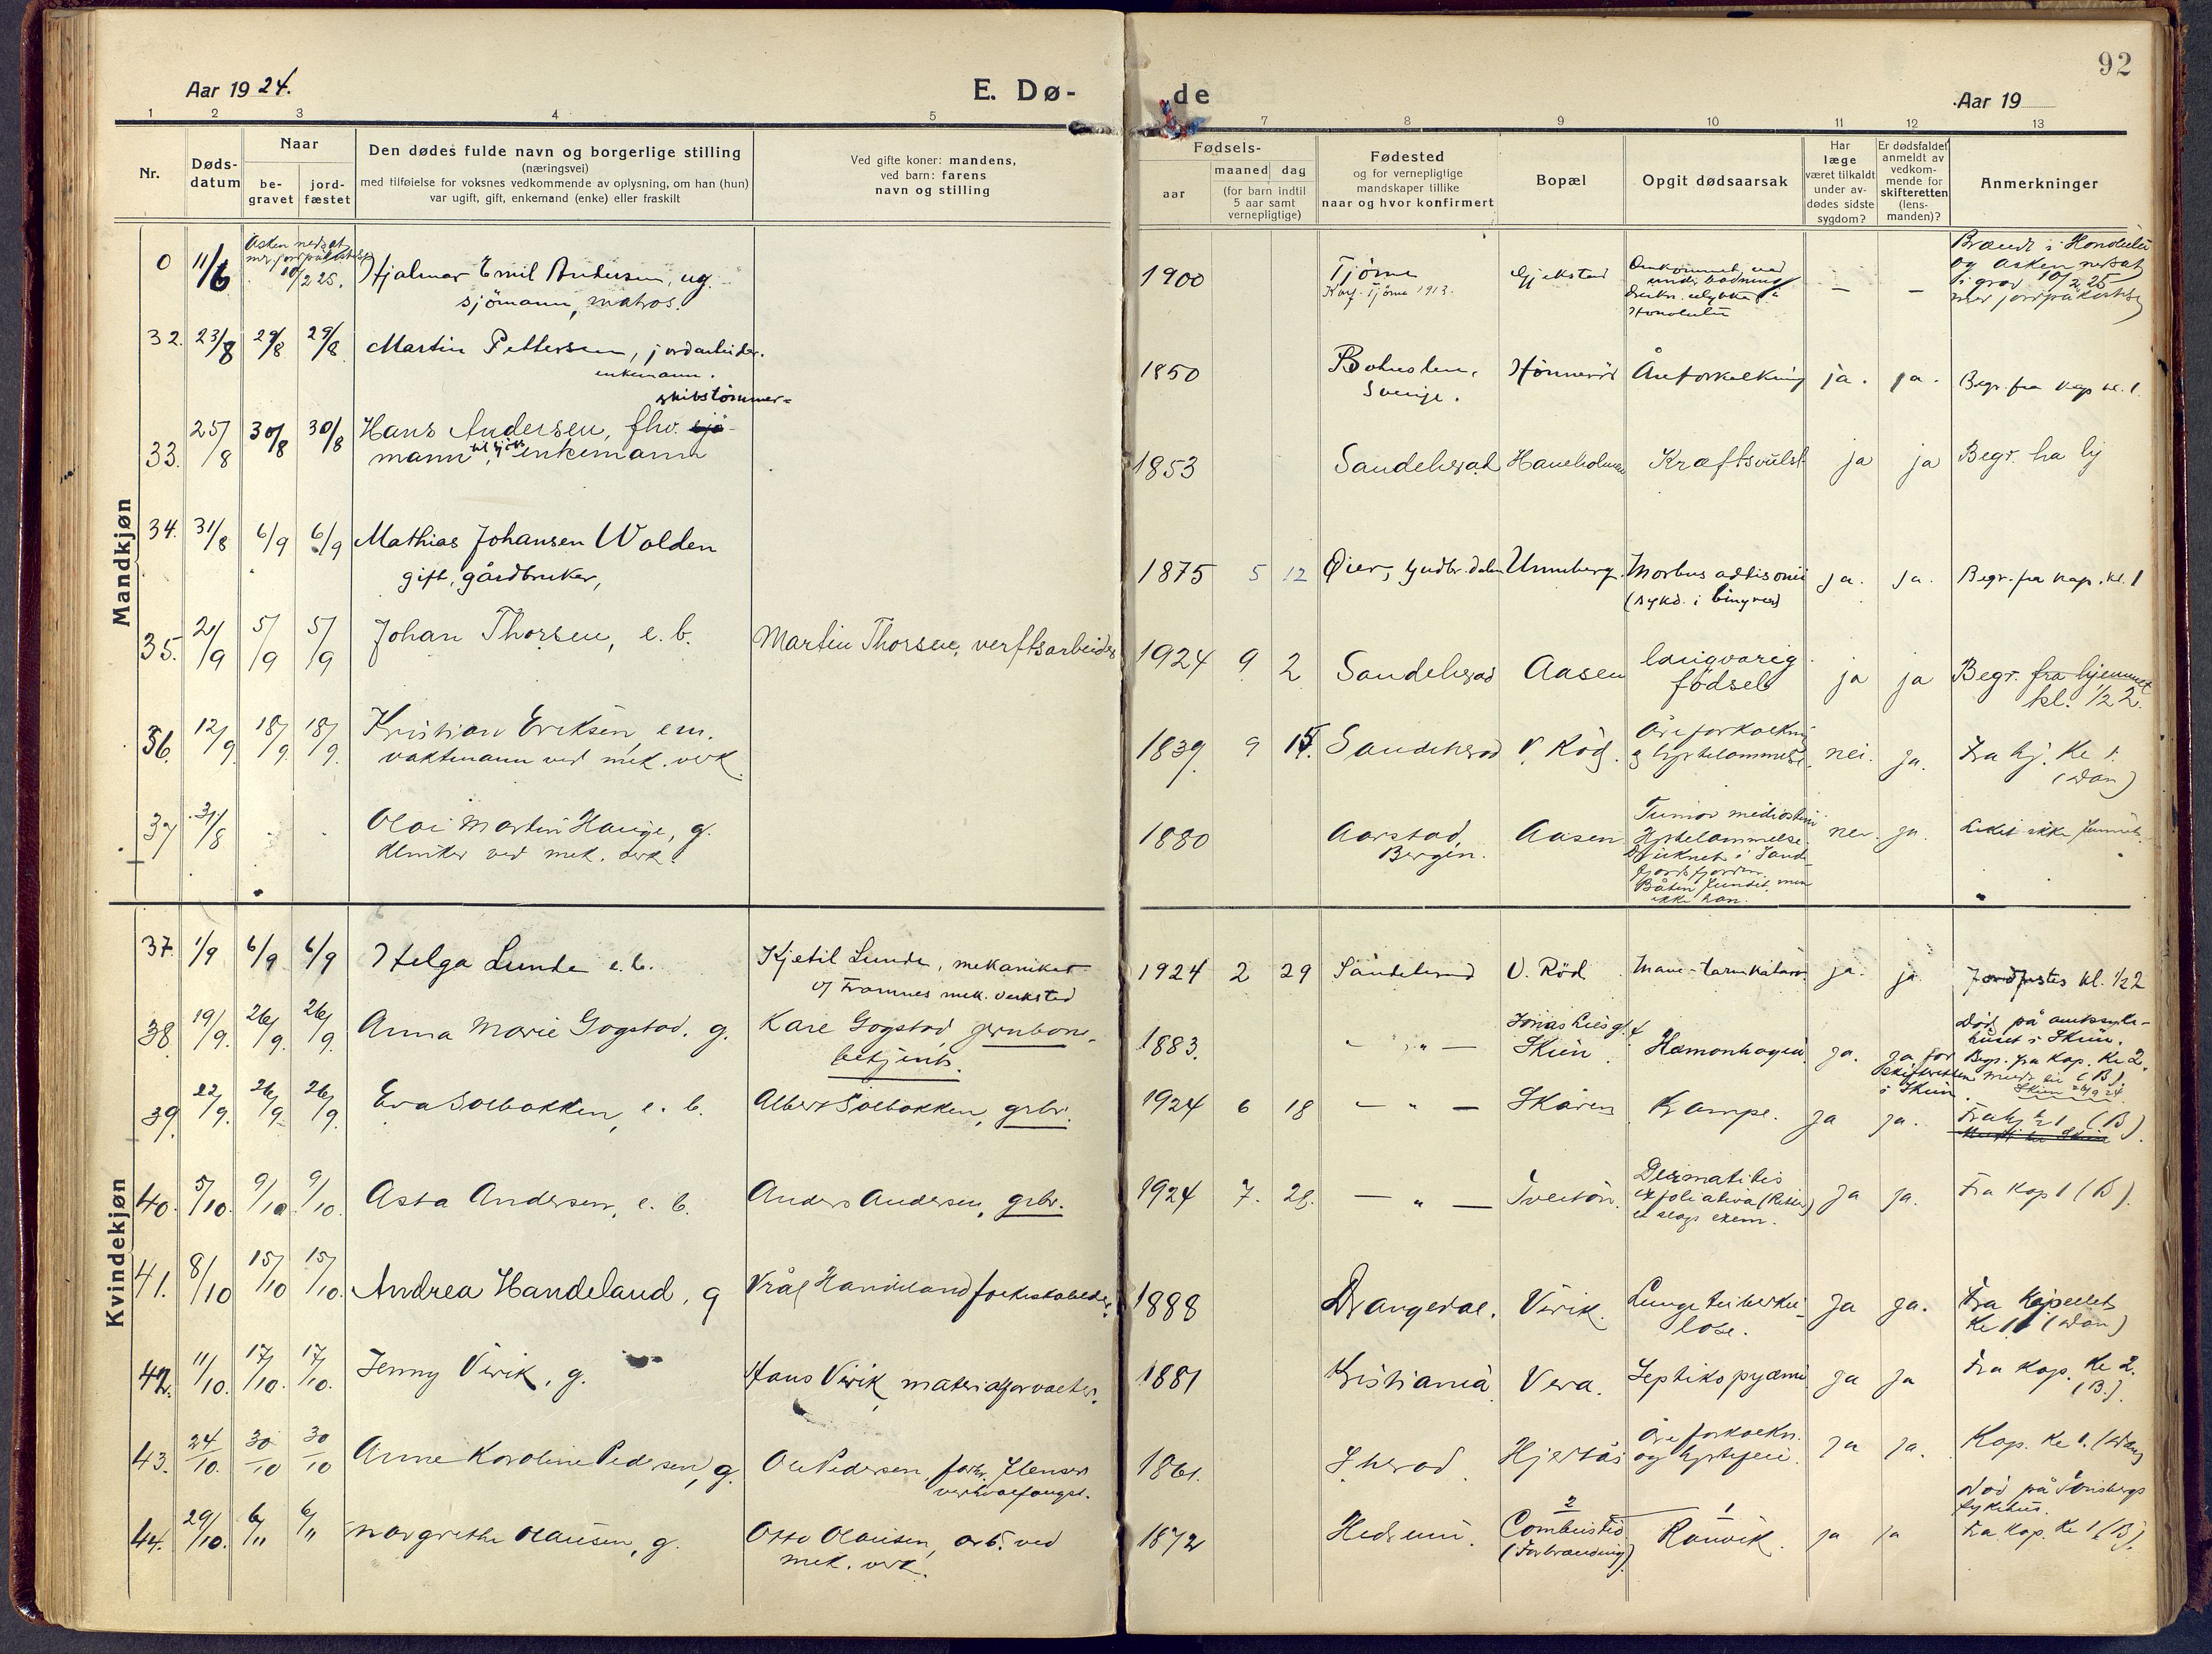 92
Aar 1924.
E. Dø-
de
Aar 19
1 2 3 4 5 7 8 9 10 11 12 13
Nr.
Døds-
datum
Naar
be-
gravet
jord-
fæstet
Den dødes fulde navn og borgerlige stilling
(næringsvei)
med tilføielse for voksnes vedkommende av oplysning, om han (hun)
var ugift, gift, enkemand (enke) eller fraskilt
Ved gifte koner: mandens,
ved barn: farens
navn og stilling
Fødsels-
aar
maaned dag
(for barn indtil
5 aar samt
vernepligtige)
Fødested
og for vernepligtige
mandskaper tillike
naar og hvor konfirmert
Bopæl
Opgit dødsaarsak
Har
læge
været tilkaldt
under av-
dødes sidste
sygdom?
Er dødsfaldet
anmeldt av
vedkom-
mende for
skifteretten
(lens-
manden)?
Anmerkninger
Mandkjøn
0 11/6 Asken nedsat
10/2 25.
Hjalmar Emil Andersen, ug.
sjömann, matros.
1900 Tjöme
Konf. Tjöme 1913.
Gjekstad
Omkommet ved
under badning
Honolulu
— —
Brændt i Honolulu
og asken nedsat
i grav 10/2 25
med jordpåkastelse
32. 23/8 29/8 29/8 Martin Pettersen, jordarbeider.
enkemann.
1850 Bohuslen,
Sverige.
Hönneröd Åreforkalkning ja. ja. Begr. fra kap kl. 1.
33. 25/8 30/8 30/8 skibstömmer-
Hans Andersen, fhv. sjö-
mann til sjös, enkemann
1853 Sandeherad Haneholmen Kræftsvulst ja ja Begr. fra hj
34. 31/8 6/9 6/9 Mathias Johansen Wolden
gift, gårdbruker,
1875 5 12 Øier, Gudbr.dalen Unneberg. Morbus addisonii
(sykd. i binyrer)
ja. ja. Begr. fra kap. kl. 1
35. 2/9 5/9 5/9 Johan Thorsen, e. b. Martin Thorsen, verftsarbeider
1924 9 2 Sandeherad Aasen langvarig
födsel
ja ja Begr. fra hjemmet
kl. 1/2 2.
36. 12/9 18/9 18/9 Kristian Eriksen, em.
vaktmann ved mek. verk.
1839 9 Sandeherad V. Röd. Åreforkalkning
og hjertelammelse.
nei. ja. Fra hj. kl 1.
37 31/8 Olai Martin Hauge, g.
ved mek. verk.
1880 Aarstad,
Bergen.
Aasen Tumor mediastini
Hjertelammelse.
Druknet i Sande-
fjordsfjorden.
Båten fundet, men
ikke han.
nei. ja. Liket ikke funnet.
Kvindekjøn
37. 1/9 6/9 6/9 Helga Lunde e. b. Kjetil Lunde, mekaniker
v/ Framnes mek. verksted
1924 2 29 Sandeherad V. Röd Mave-tarmkatarr ja. ja Jordfestes kl. 1/2 2
38. 19/9. 26/9. 26/9. Anna Marie Gogstad. g. Kare Gogstad jernbane-
betjent.
1883. — " — Jonas Liesgt 4
Skien.
Hæmorrhagia ja. ja for
skifteretten
i Skien.
Död på amtssyke-
huset i Skien.
Begr. fra Kap. kl 2.
(B).
Skien 26/9 24.
39. 22/9. 26/9. 26/9. Eva Solbakken, e. b. Albert Solbakken, grbr.
1924 6 18 — " — Skåren Krampe. ja ja. Fra hj kl 1 (B).
40. 5/10. 9/10 9/10. Asta Andersen, e. b. Anders Andersen, grbr.
1924 7. 28. — " — Tveitan. Dermatitis
exfoliativa (Ritter)
et slags exem.
ja ja. Fra Kap 1 (B).
41. 8/10 15/10 15/10. Andrea Handeland, g Vrål Handeland folkeskolelærer.
1888 Drangedal. Virik. Lungetuberku-
lose.
ja ja. Fra Kapellet
kl 11
42. 11/10. 17/10. 17/10. Jenny Virik, g. Hans Virik, materialforvalter.
1881 Kristiania Vera. Septikopyæmi ja ja Fra Kap. kl 2.
(B.)
43. 24/10. 30/10 30/10 Anne Karoline Pedersen, g. Ole Pedersen,
1861. S.herad. Hjertås Åreforkalkn.
og hjertefeil.
ja ja. Kap. kl 1.
44. 29/10. 6/11 6/11 Margrethe Olausen, g. Otto Olausen, arb. ved
mek. verk.
1872 Hedrum. 2
Combustio
(Forbrænding)
1
Ranvik. ja ja Död på Tönsbergs
sykehus.
Fra Kap. kl 1 (B).